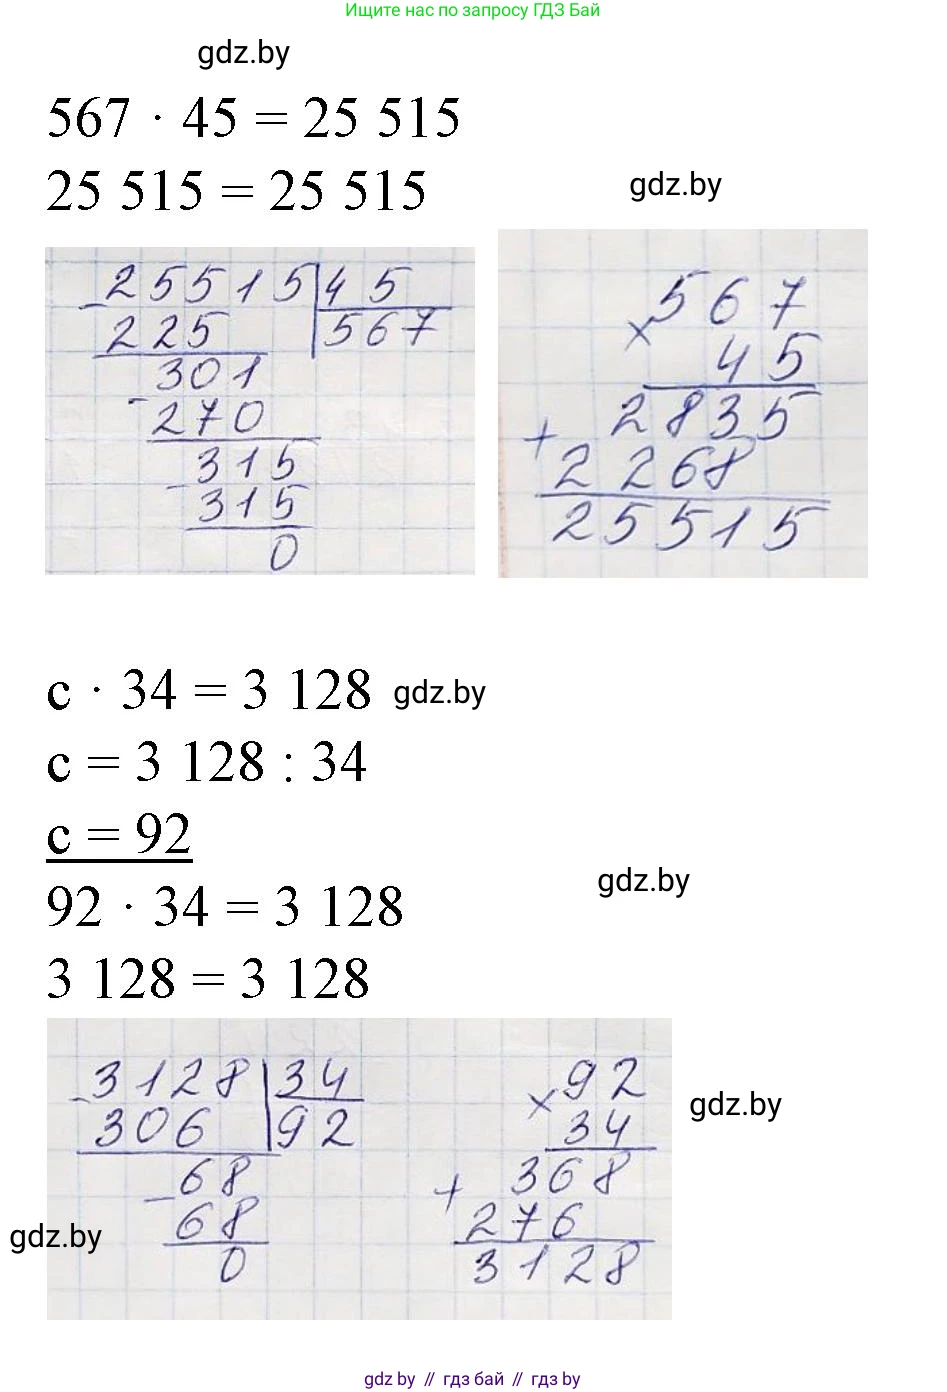 Ищите нас по запросу ГДЗ Бай
gdz.by
567 · 45 = 25 515
25 515 = 25 515
gdz.by
- 25515 | 45
225 | 567
301
- 270
315
- 315
0
567
× 45
2835
+ 2268
25515
с · 34 = 3 128
gdz.by
с = 3 128 : 34
с = 92
92 · 34 = 3 128
gdz.by
3 128 = 3 128
- 3128 | 34
306 | 92
- 68
68
0
92
× 34
368
+ 276
3128
gdz.by
gdz.by
gdz.by // гдз бай // гдз by